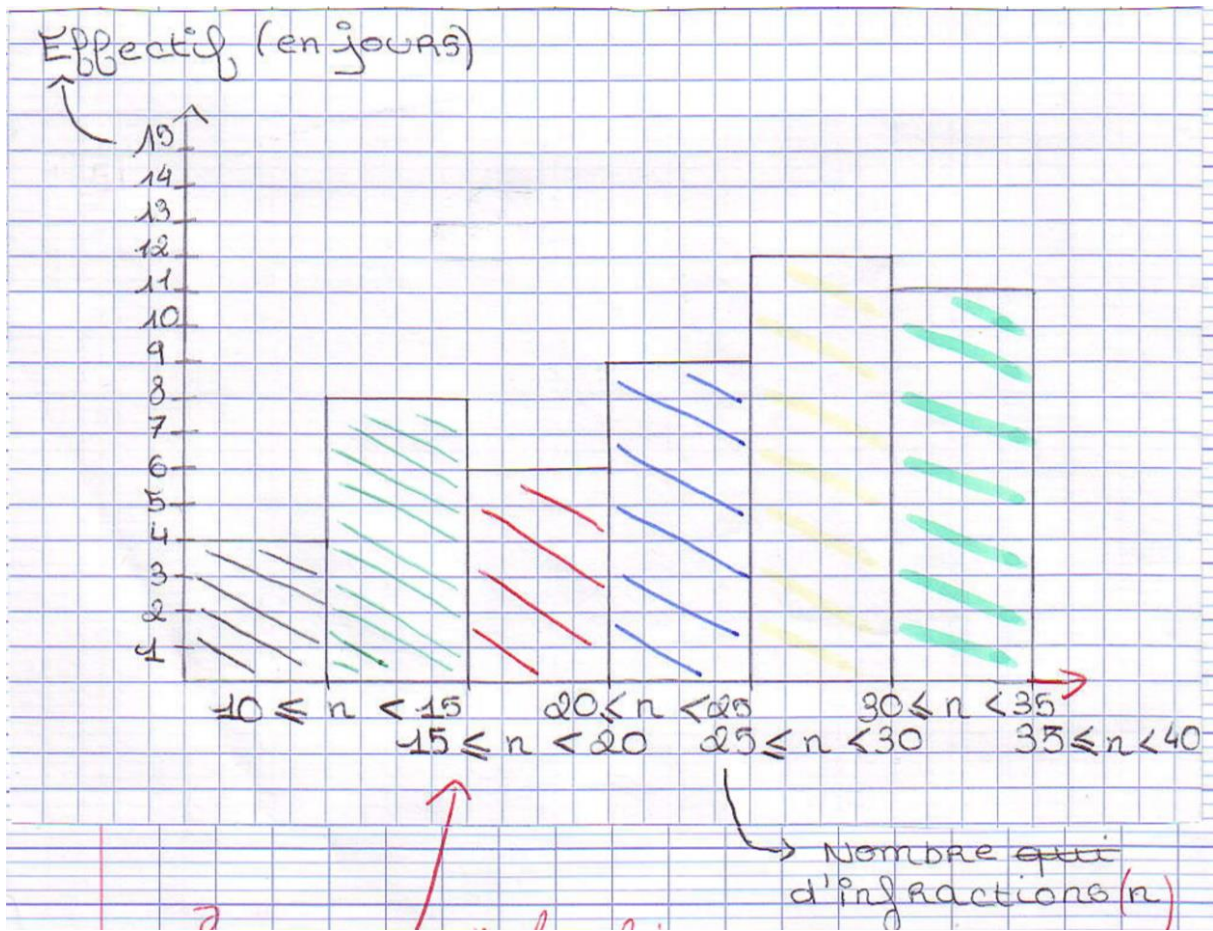 Effectif (en jours)
15
14
13
12
11
10
9
8
7
6
5
4
3
2
1
10 ≤ n < 15
20 ≤ n < 25
30 ≤ n < 35
15 ≤ n < 20
25 ≤ n < 30
35 ≤ n < 40
Nombre qui
d'infractions (n)